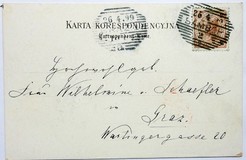 KARTA KORESPONDENCYJNA
Correspondenz-Karte
Hochwohlgeb.
Frau Wilhelmine v. Schaefler
Graz
Wartingergasse